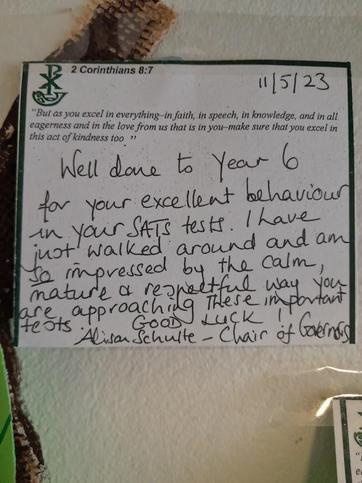 2 Corinthians 8:7
11/5/23
"But as you excel in everything–in faith, in speech, in knowledge, and in all
eagerness and in the love from us that is in you–make sure that you excel in
this act of kindness too ."
Well done to Year 6
for your excellent behaviour
in your SATs tests. I have
just walked around and am
so impressed by the calm,
mature & respectful way you
are approaching these important
tests. GOOD LUCK !
Alison Schulte – Chair of Governors